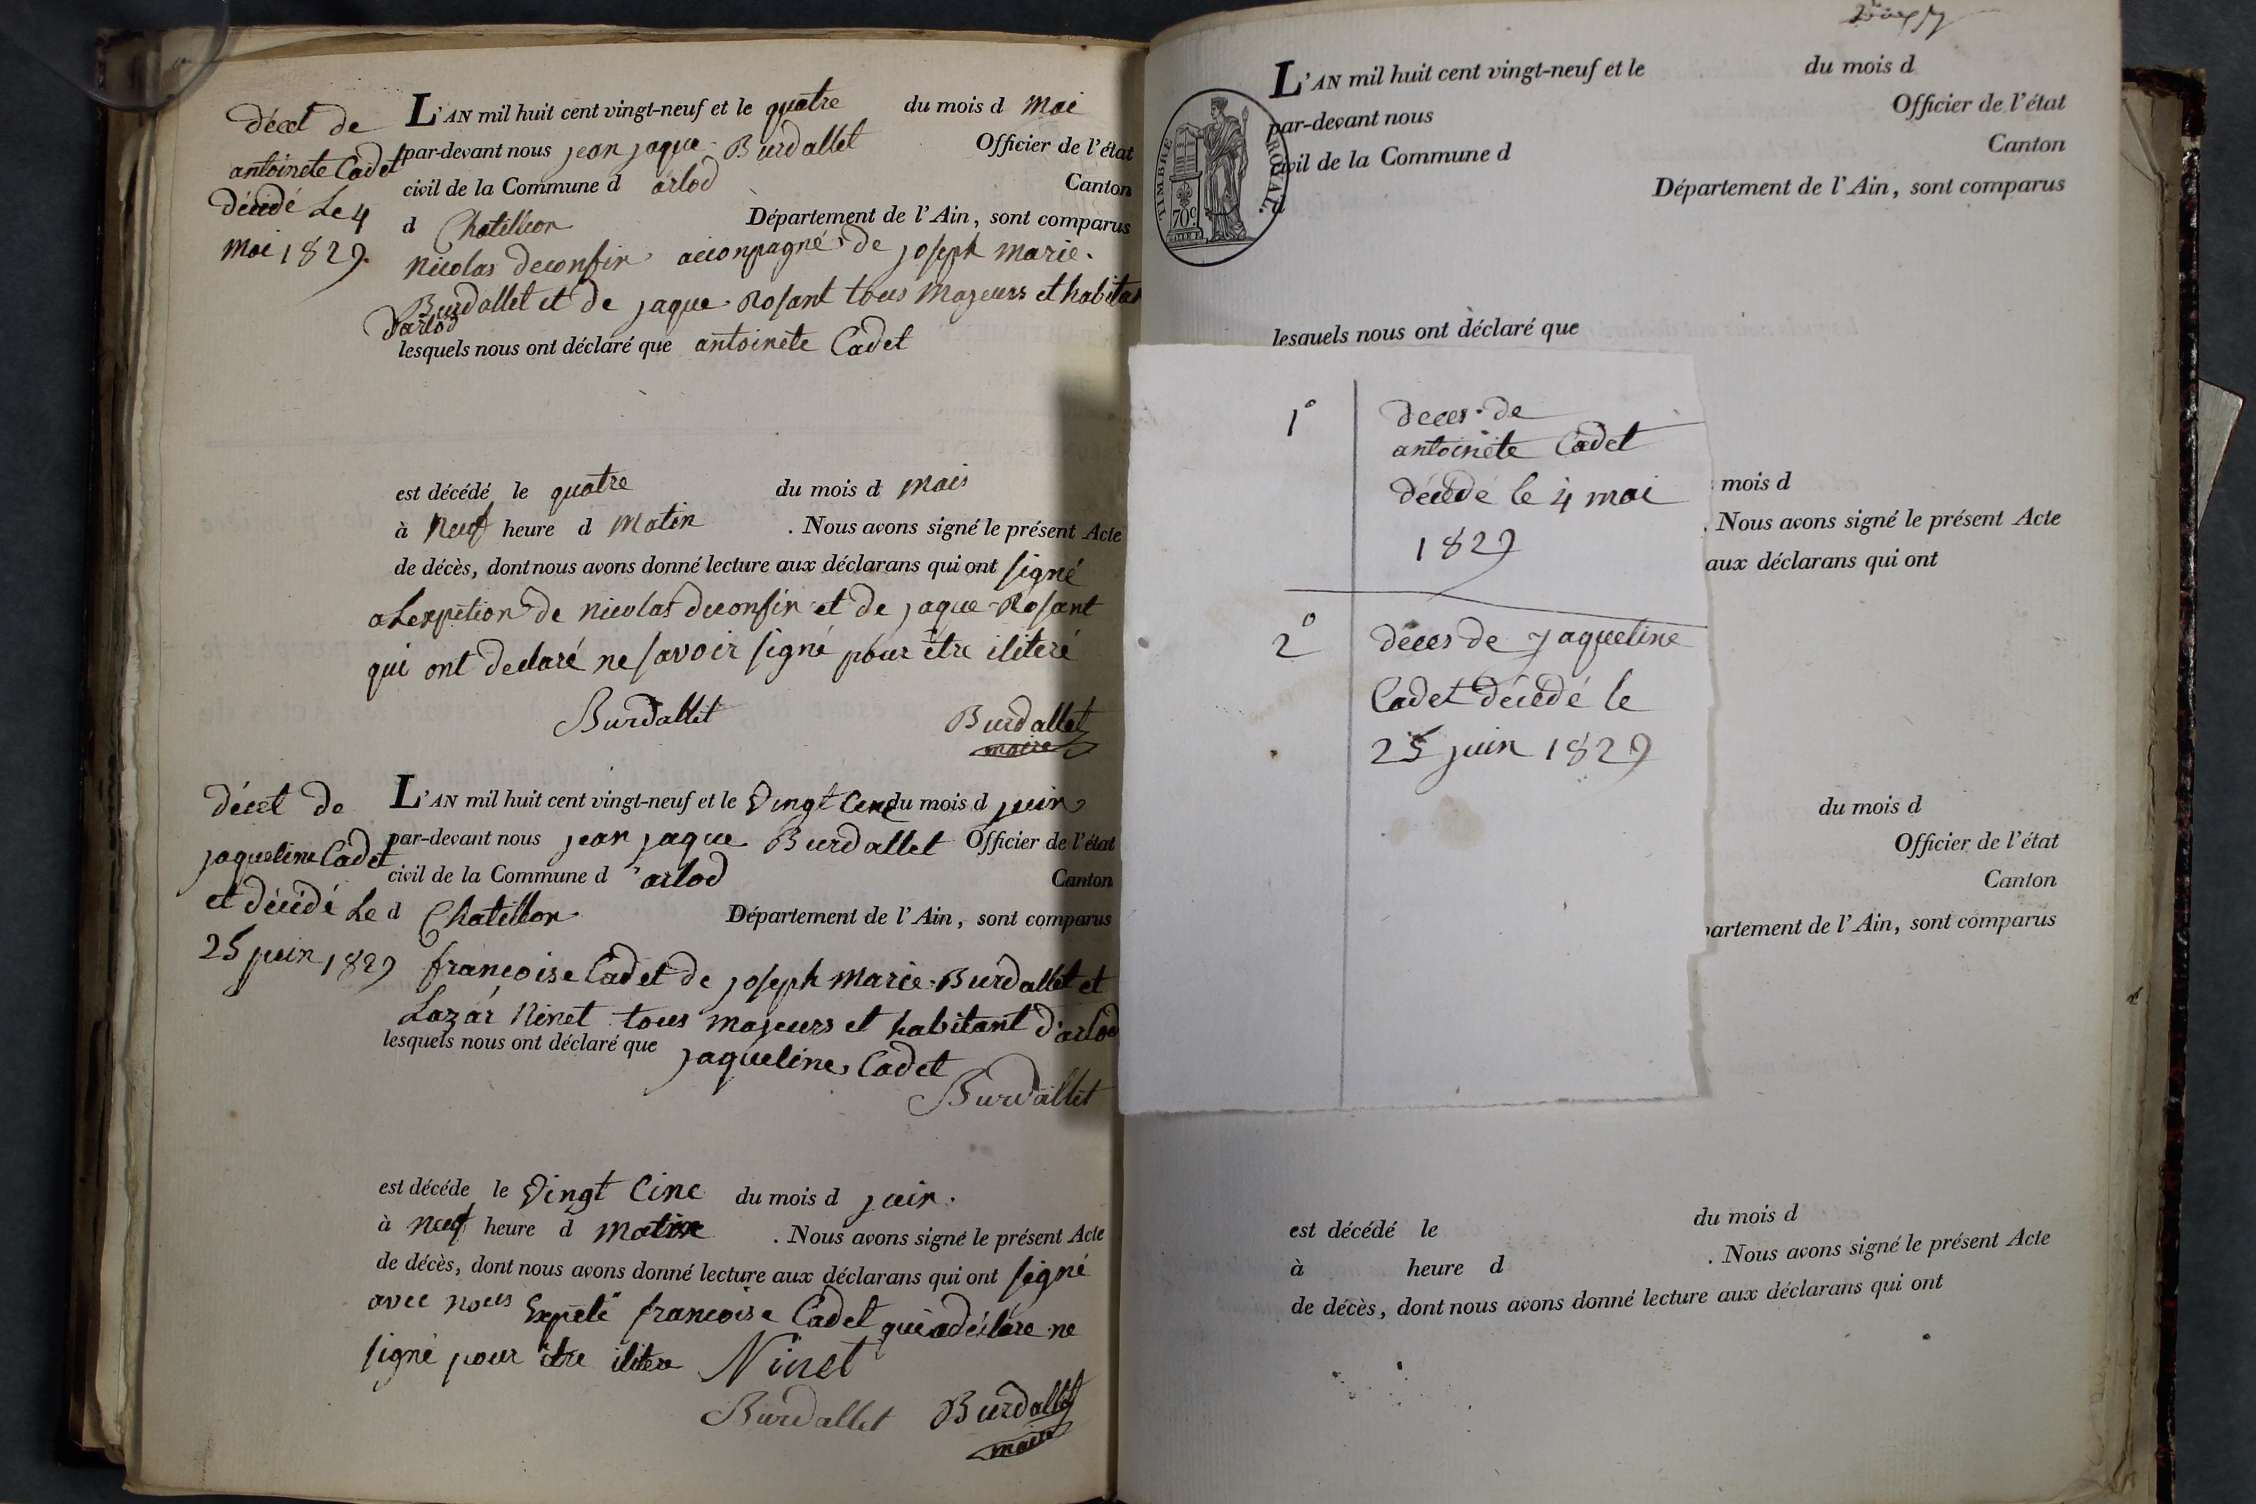 décet de
antoinete Cadet
décédé Le 4
mai 1829.
L'AN mil huit cent vingt-neuf et le quatre du mois d mai
par-devant nous jean jaque Burdallet Officier de l'état
civil de la Commune d arlod Canton
d Chatillion Département de l'Ain, sont comparus
nicolas deconfin acconpagné de joseph marie
Burdallet et de jaque Rosant tous majeurs et habitan
d'arlod
lesquels nous ont déclaré que antoinete Cadet
est décédé le quatre du mois d mais
à neuf heure d matin . Nous avons signé le présent Acte
de décès, dont nous avons donné lecture aux déclarans qui ont signé
a Lexpetion de nicolas deconfin et de jaque Rosant
qui ont declaré ne savoir signé pour être iliteré
Burdallet Burdallet
maire
décet de
jaqueline Cadet
et décédé Le
25 juin 1829
L'AN mil huit cent vingt-neuf et le vingt cinc du mois d juin
par-devant nous jean jaque Burdallet Officier de l'état
civil de la Commune d arlod Canton
d Chatillon Département de l'Ain, sont comparus
francoise Cadet de joseph marie Burdallet et
Lazar Ninet tous majeurs et habitant d'arlod
lesquels nous ont déclaré que jaqueline Cadet
Burdallet
est décéde le vingt cinc du mois d juin.
à neuf heure d matin . Nous avons signé le présent Acte
de décès, dont nous avons donné lecture aux déclarans qui ont signé
avec nous Expeté francoise Cadet qui a déclare ne
signé pour être ilitere Ninet
Burdallet Burdallet
maire
L'AN mil huit cent vingt-neuf et le du mois d
par-devant nous Officier de l'état
civil de la Commune d Canton
d Département de l'Ain, sont comparus
TIMBRE ROYAL.
70c
lesquels nous ont déclaré que
1° deces de
antoinete Cadet
décédé le 4 mai
1829
2° deces de jaqueline
Cadet décédé le
25 juin 1829
mois d
. Nous avons signé le présent Acte
aux déclarans qui ont
du mois d
Officier de l'état
Canton
partement de l'Ain, sont comparus
est décédé le du mois d
à heure d . Nous avons signé le présent Acte
de décès, dont nous avons donné lecture aux déclarans qui ont